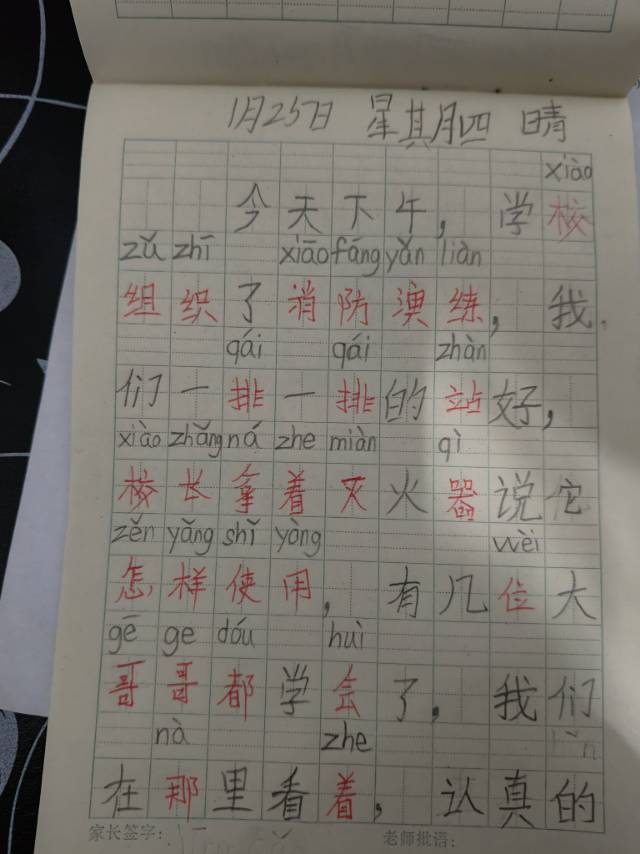 1月25日 星其月四 晴
xiào
今天下午，学校
zǔ zhī xiāo fáng yǎn liàn
组织了消防演练，我
qái qái zhàn
们一排一排的站好，
xiào zhǎng ná zhe miàn qì
校长拿着灭火器说它
zěn yǎng shǐ yòng wèi
怎样使用，有几位大
gē ge dóu huì
哥哥都学会了，我们
nà zhe
在那里看着，认真的
家长签字： 老师批语：